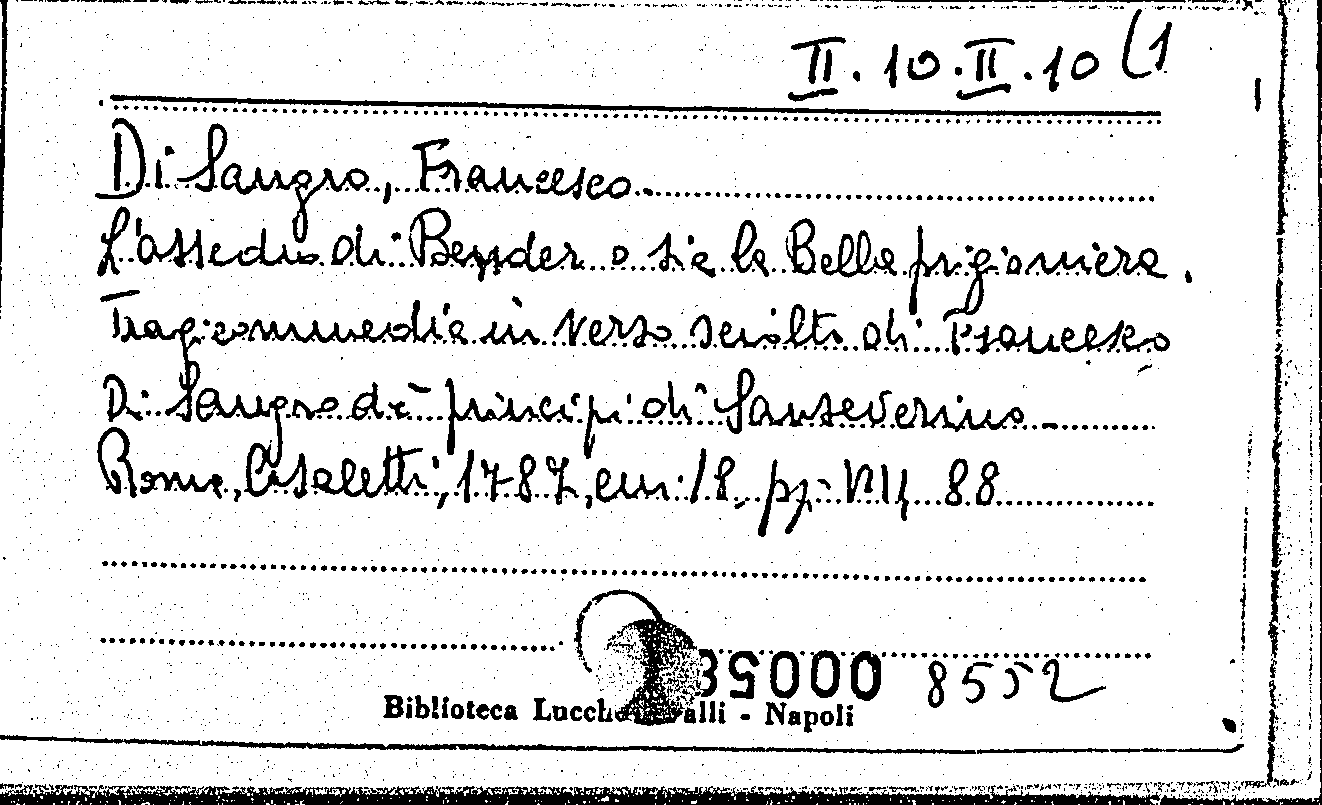 II. 10. II. 10 (1
Di Sangro, Francesco.
L'assedio di Bender o sia la Bella prigioniera.
Tragicommedia in verso sciolto di Francesco
Di Sangro de' principi di Sanseverino.
Roma, Casaletti, 1787, in-18, pp. VII, 88
00058 8552
Biblioteca Lucchesi Palli - Napoli